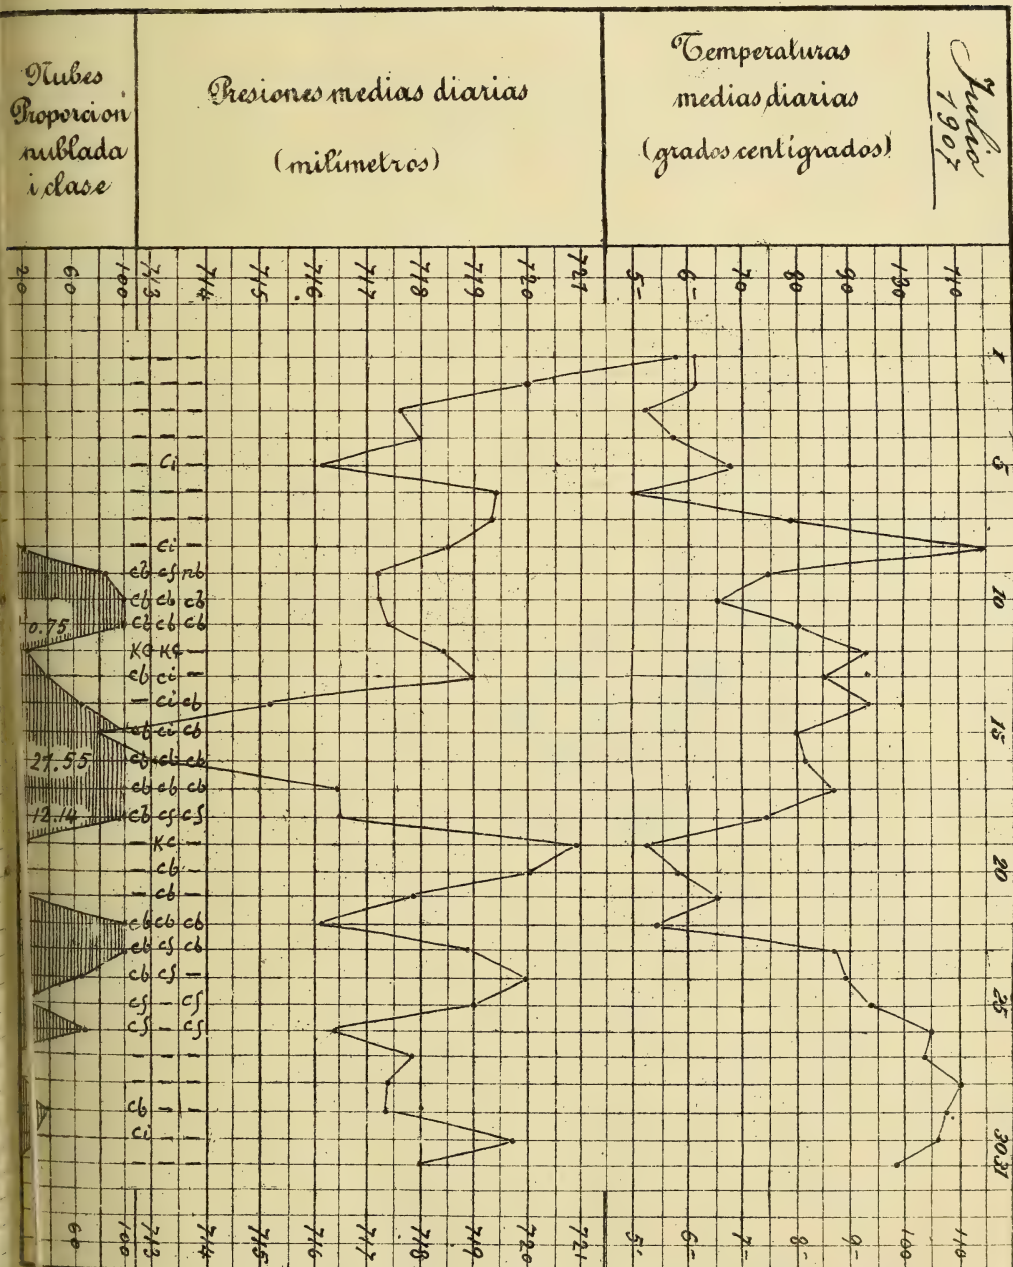 Nubes
Proporcion
nublada
i clase
Presiones medias diarias
(milímetros)
Temperaturas
medias diarias
(grados centígrados)
Julio
1907
20 60 100 713 714 715 716 717 718 719 720 721 5- 6- 70 80 90 100 110
1
- - -
- - -
- - -
- - -
- Ci - 5
- - -
- - -
- Ci -
cb cs nb
cb cb cb 10
0.75 cb cb cb
KC KC -
cb ci -
- ci cb
cb ci cb 15
27.55 cb cb cb
cb cb cb
12.14 cb cs cs
- KC -
- cb - 20
- cb -
cb cb cb
cb cs cb
cb cs -
cs - cs 25
cs - cs
- - -
- - -
cb - -
ci - - 30
- - - 31
60 100 713 714 715 716 717 718 719 720 721 5- 6- 7- 8- 9- 100 110